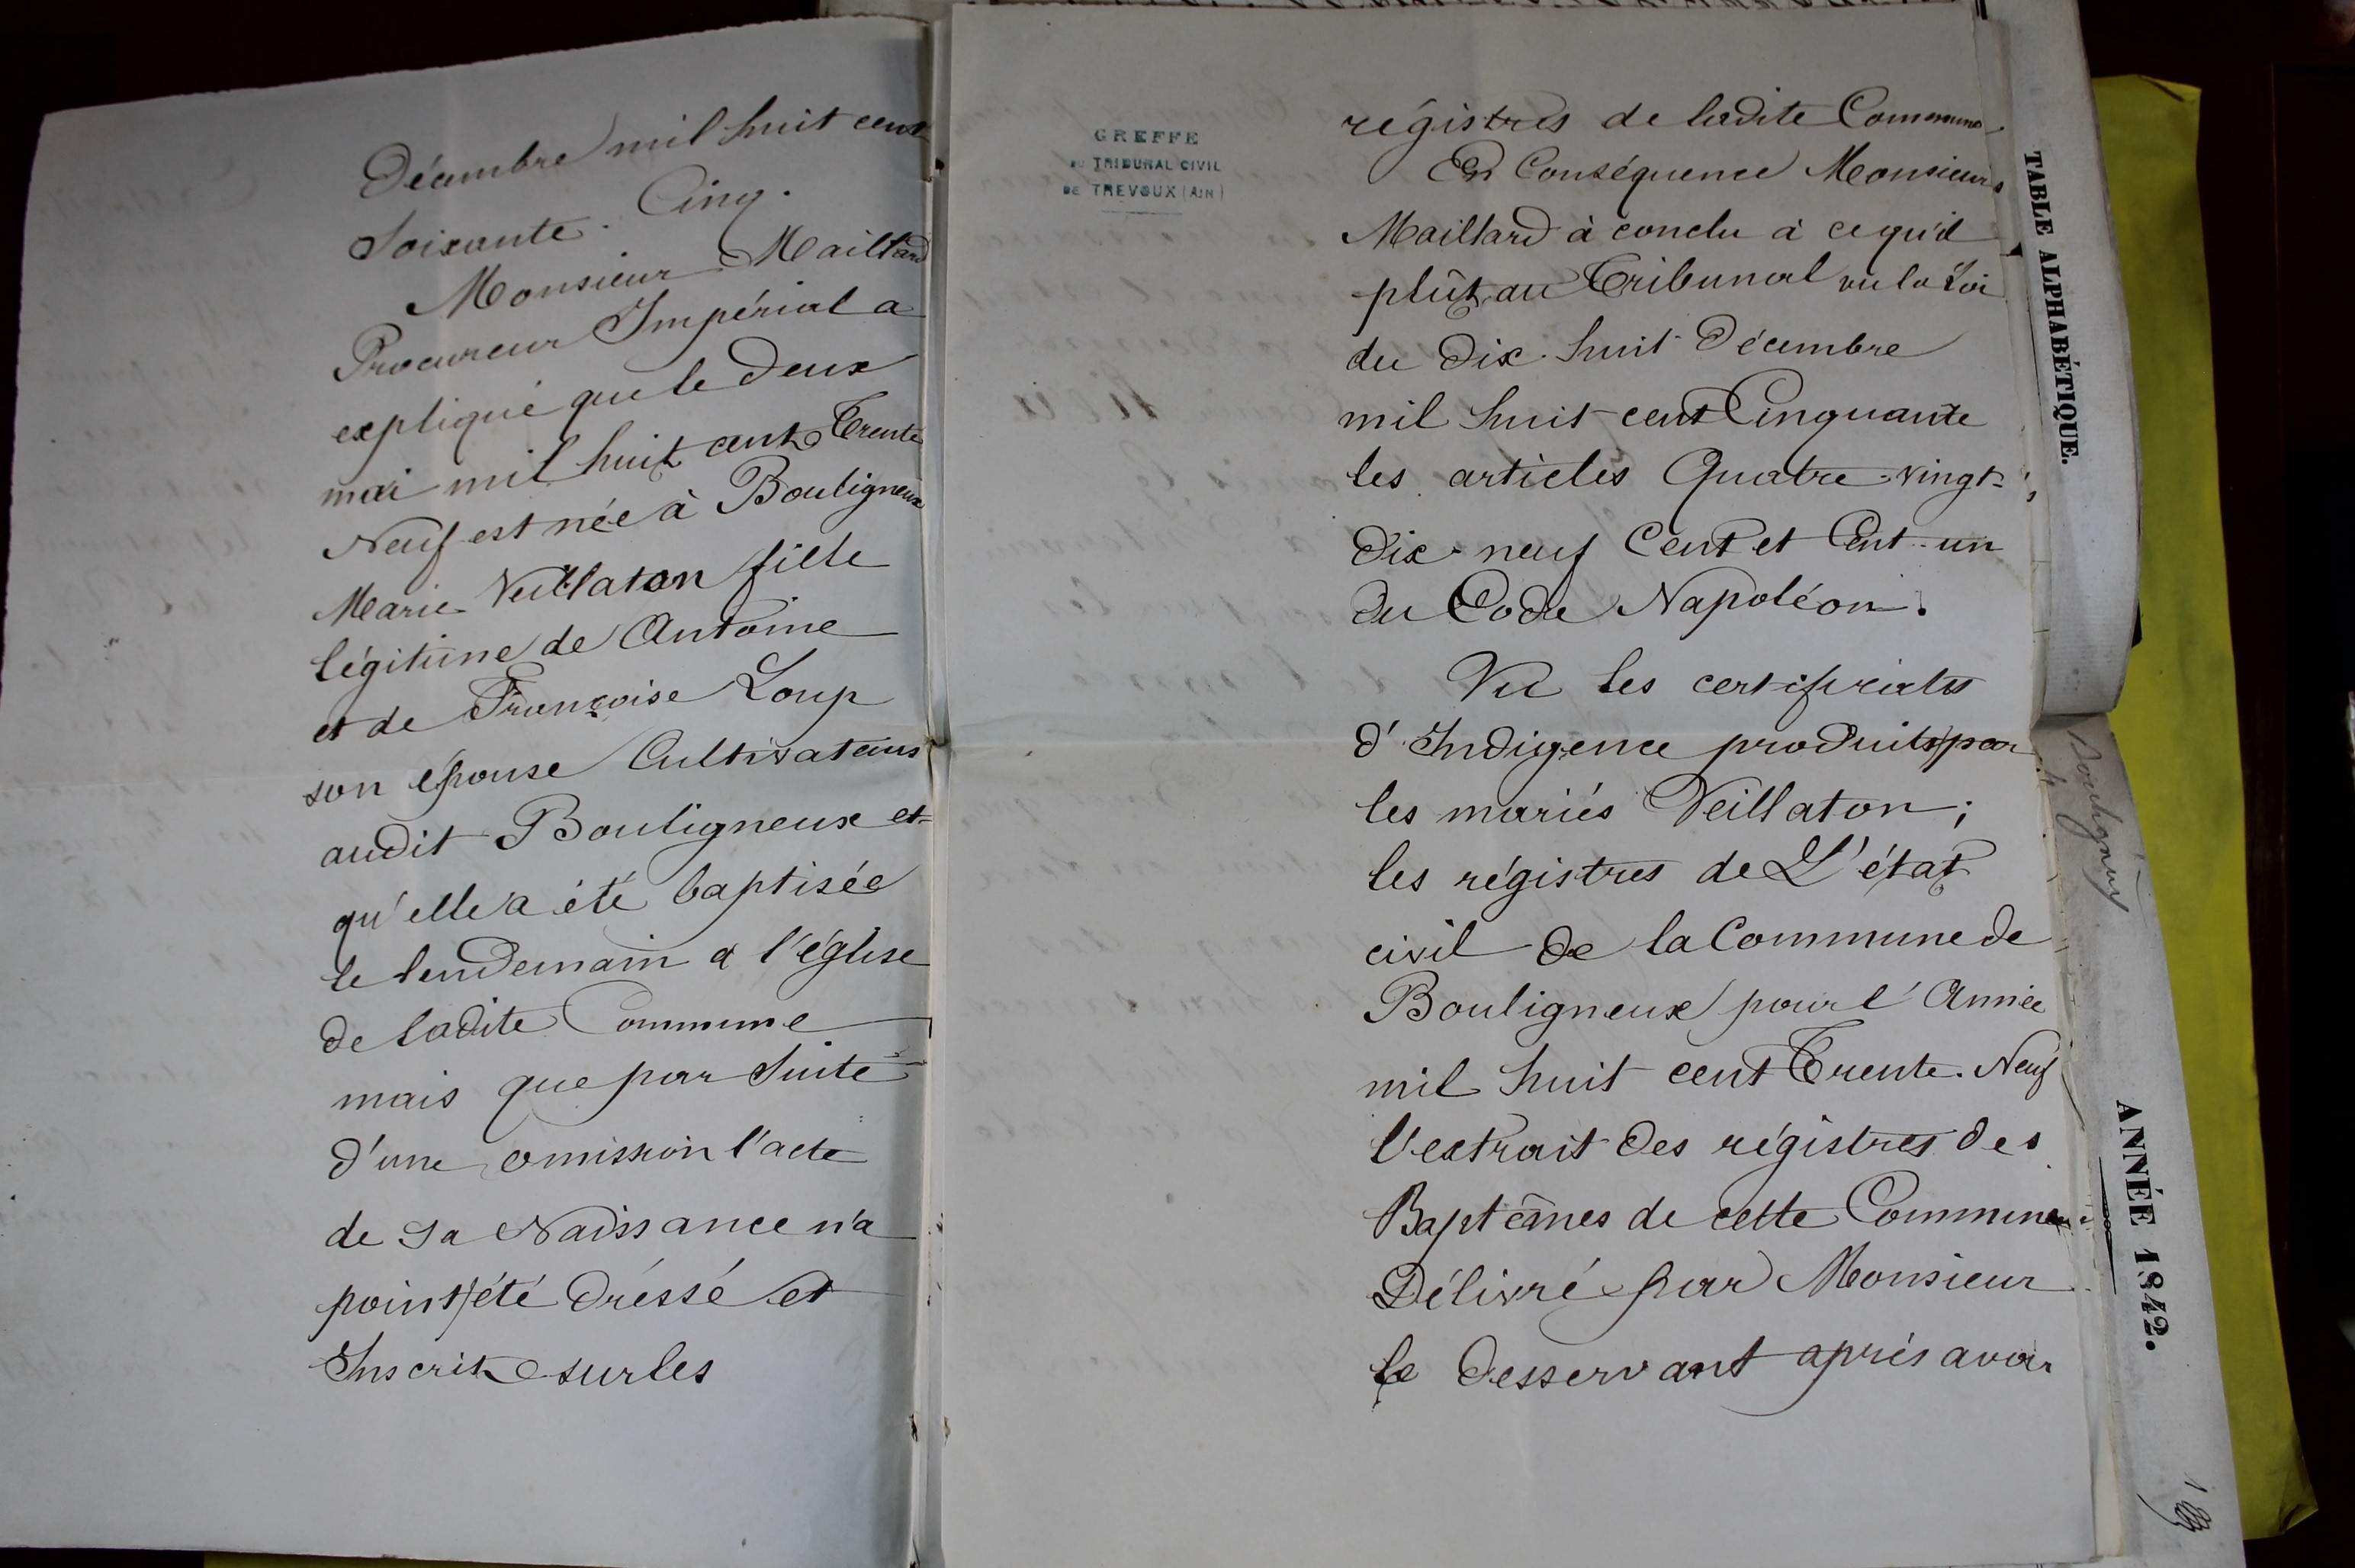 Décembre mil huit cent
Soixante. Cinq.
Monsieur Maillard
Procureur Impérial a
expliqué que le deux
mai mil huit cent Trente
Neuf est née à Bouligneux
Marie Veillaton fille
légitime de Antoine
et de Françoise Loup
son épouse Cultivateurs
audit Bouligneux et
qu'elle a été baptisée
le lendemain a l'église
de ladite Commune
mais que par Suite
d'une omission l'acte
de sa Naissance n'a
point été dréssé et
Inscrit sur les
GREFFE
DU TRIBUNAL CIVIL
DE TREVOUX (AIN)
régistres de ladite Commune.
En Conséquence Monsieur
Maillard à conclu à ce qu'il
plût au Tribunal vu la Loi
du Dix. huit Décembre
mil huit cent Cinquante
les articles Quatre-vingt-
Dix-neuf Cent et Cent-un
du Code Napoléon.
Vu les certificats
d'Indigence produits par
les mariés Veillaton;
les régistres de L'état
civil de la Commune de
Bouligneux pour l'Année
mil huit cent Trente. Neuf
l'extrait des régistres des
Baptêmes de cette Commune
Délivré par Monsieur
le Desservant après avoir
TABLE ALPHABÉTIQUE.
ANNÉE 1842.